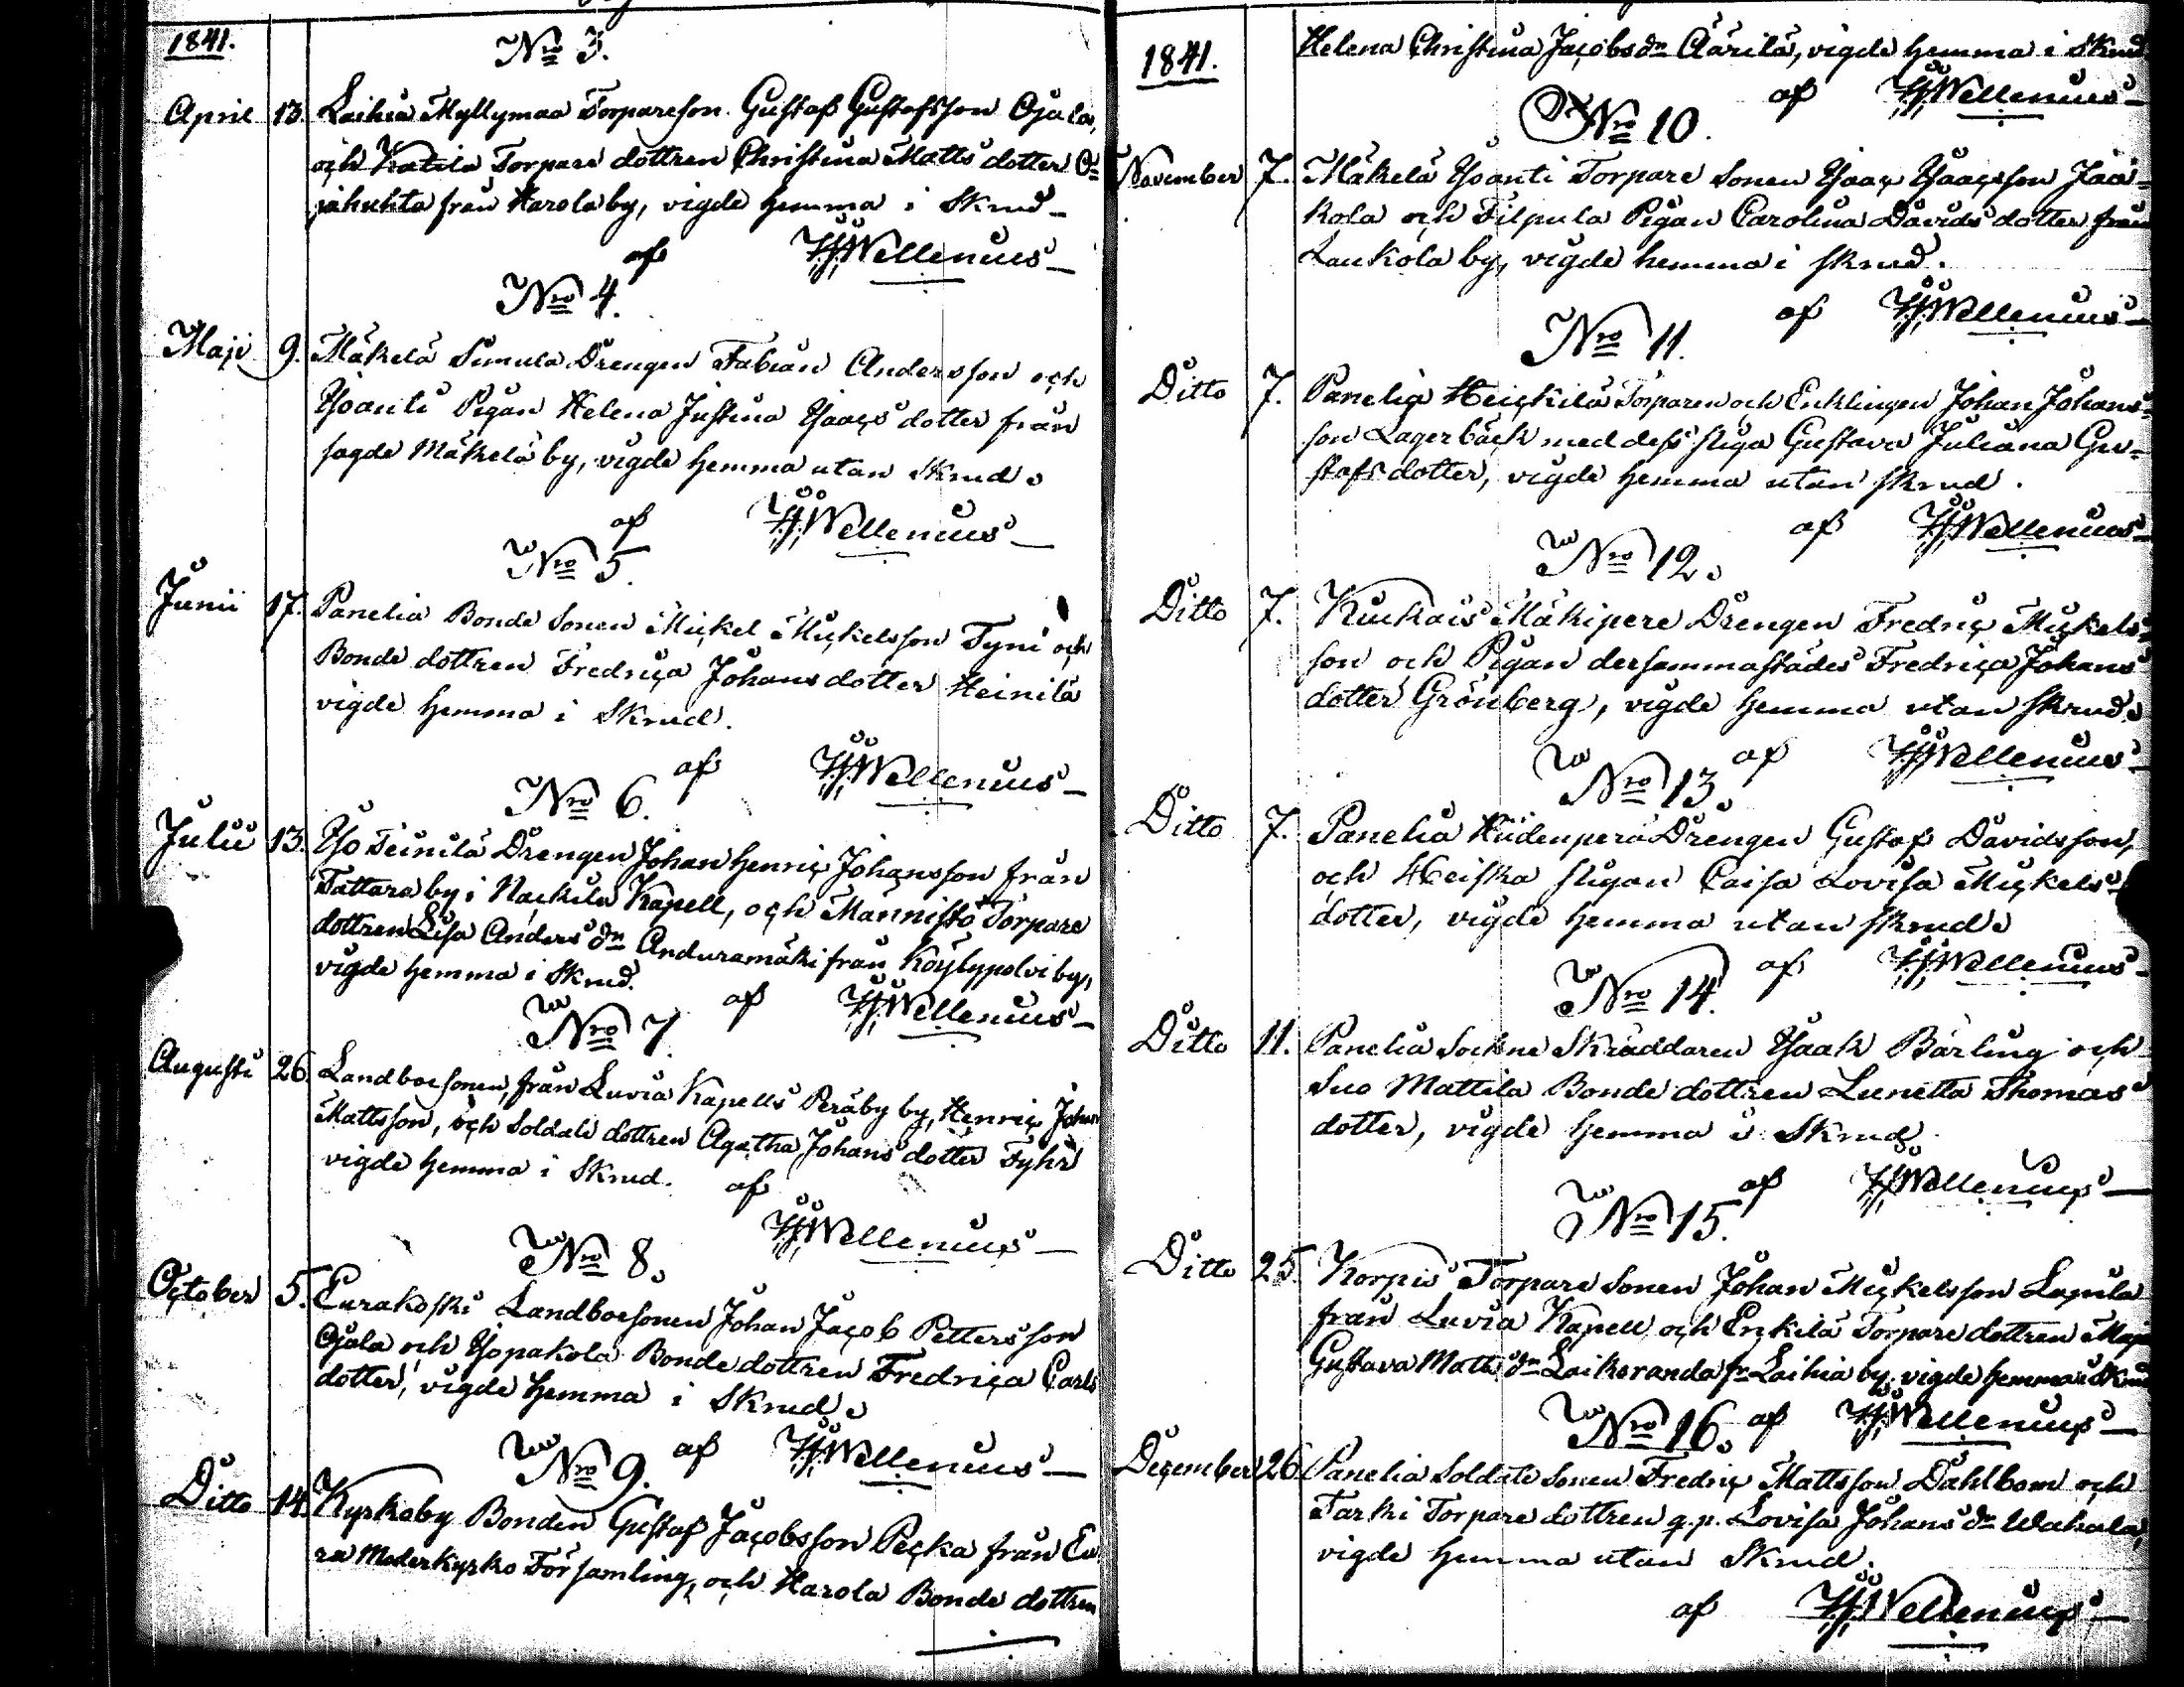 1841.
Nro 3.
April 13. Laihia Myllymaa Torpareson Gustaf Gustafsson Ojala,
och Katila Torpare dottren Christina Matts dotter O=
jahuhta från Harola by, vigde hemma i Skrud
af HJWellenius
Nro 4.
Maji 9. Mäkelä Simula Drengen Fabian Andersson och
Ysoanti Pigan Helena Justina Ysaacs dotter från
sagde Mäkelä by, vigde hemma utan Skrud.
af HJWellenius
Nro 5.
Junii 17. Panelia Bonde Sonen Mickel Mickelsson Tyni och
Bonde dottren Fredrica Johans dotter Heinilä
vigde hemma i Skrud.
af HJWellenius
Nro 6.
Julii 13. Yso Teinilä Drengen Johan Henric Johansson från
Tattara by i Nackila Kapell, och Männistö Torpare
dottren Lisa Anders dn Anduramäki från Köylypolvi by,
vigde hemma i Skrud.
af HJWellenius
Nro 7
Augusti 26. Landboesonen, från Luvia Kapells Peräby by, Henric Johan
Mattsson, och Soldats dottren Agatha Johans dotter Fyhr
vigde hemma i Skrud.
af HJWellenius
Nro 8.
October 5. Eurakoski Landboesonen Johan Jacob Pettersson
Ojala och Ysopakola Bonde dottren Fredrica Carls
dotter, vigde hemma i Skrud.
af HJWellenius
Nro 9.
Ditto 14. Kyrkoby Bonden Gustaf Jacobsson Pecka från Eu
ra Moderkyrko Församling, och Harola Bonde dottren
1841.
Helena Christina Jacobs dn Äärilä, vigde hemma i Skrud
af HJWellenius
Nro 10.
November 7. Mäkelä Ysoanti Torpare Sonen Ysaac Ysaacsson Jaa=
kola och Filpula Pigan Carolina Davids dotter från
Laukola by, vigde hemma i skrud.
af HJWellenius
Nro 11.
Ditto 7. Panelia Heickilä Torparen och Enklingen Johan Johans=
son Lagerbäck med dess piga Gustava Juliana Gu=
stafs dotter, vigde hemma utan skrud.
af HJWellenius
Nro 12.
Ditto 7. Kiukais Mäkipere Drengen Fredric Mickels=
son och Pigan dersammastädes Fredrica Johans
dotter Grönberg, vigde hemma utan skrud.
af HJWellenius
Nro 13.
Ditto 7. Panelia Hiidenperä Drengen Gustaf Davidsson,
och Heiska pigan Caisa Lovisa Mickels=
dotter, vigde hemma utan skrud.
af HJWellenius
Nro 14.
Ditto 11. Panelia Sockne Skräddaren Ysaak Bärling och
Suo Mattila Bonde dottren Lunetta Thomas
dotter, vigde hemma i Skrud.
af HJWellenius
Nro 15.
Ditto 25. Korpis Torpare Sonen Johan Mickelsson Lapila
från Luvia Kapell och Erkilä Torpare dottren Maja
Gustava Matts dn Laikoranda fr Laihia by, vigde hemma i Skrud
af HJWellenius
Nro 16.
December 26. Panelia Soldats Sonen Fredric Mattsson Dahlbom och
Tarki Torpare dottren q.p. Lovisa Johans dn Wahala,
vigde hemma utan Skrud.
af HJWellenius